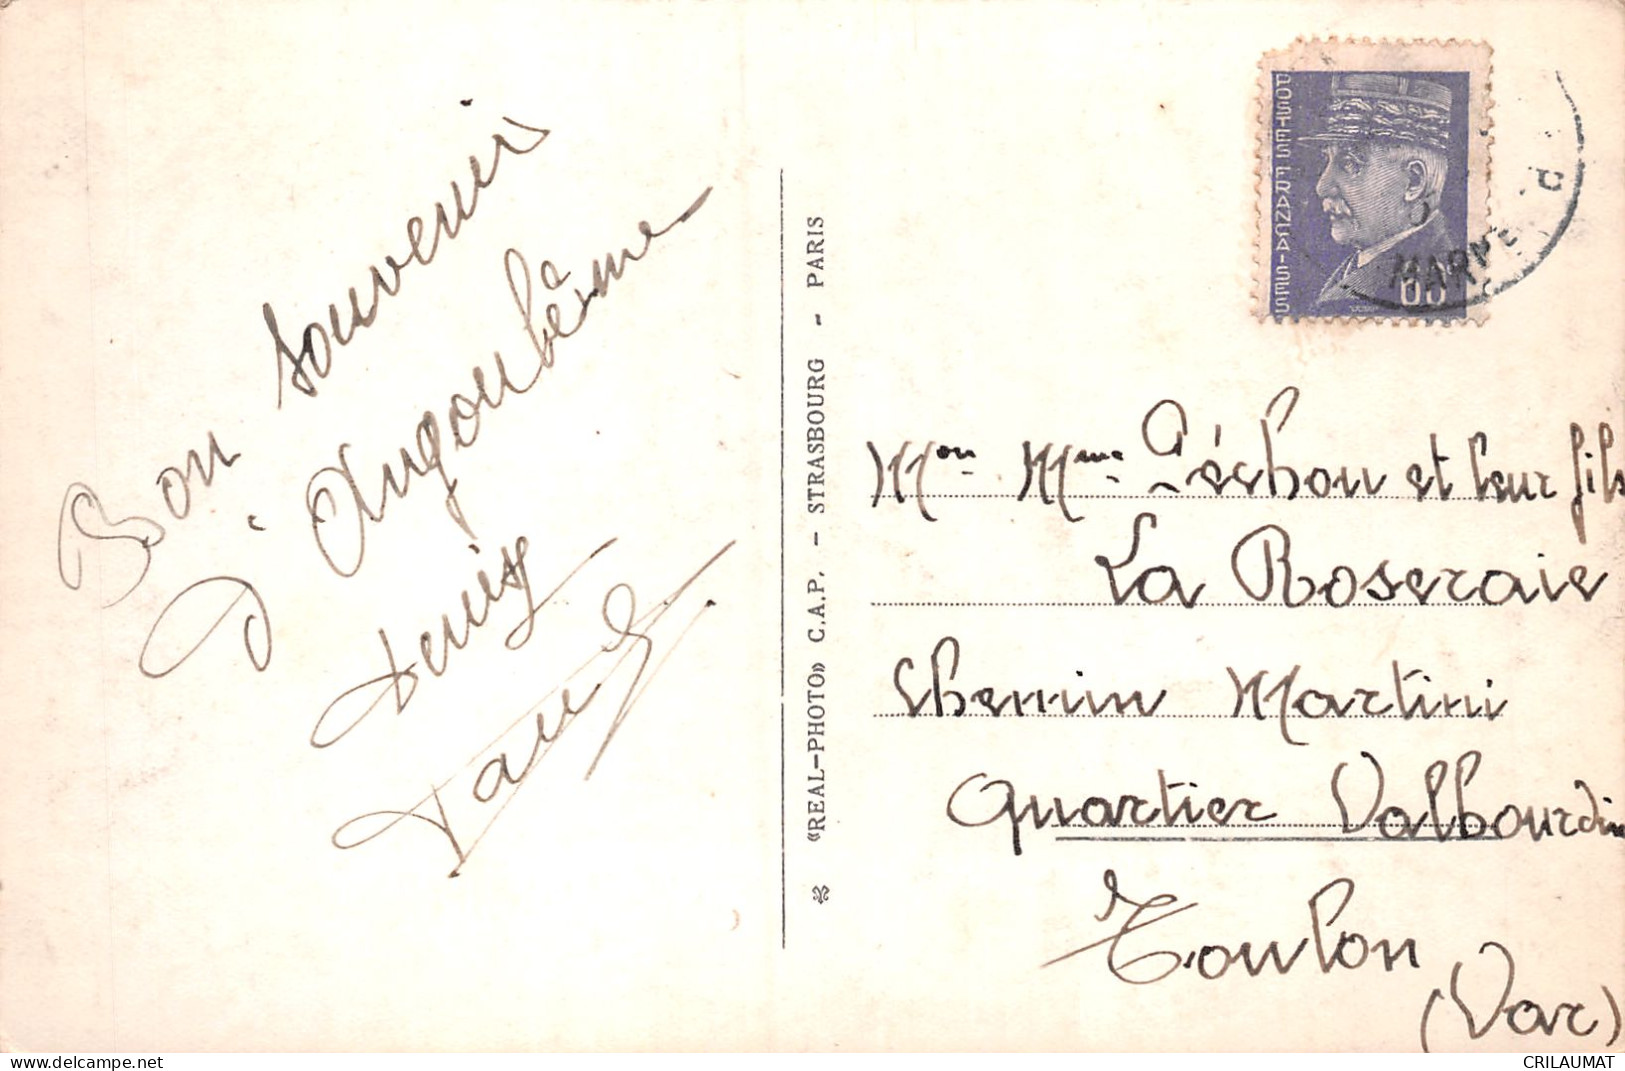 Bon souvenir
d'Angoulême
Denise
«REAL-PHOTO» C.A.P. - STRASBOURG - PARIS
POSTES FRANÇAISES
MARNE
Mon Mme Péchon et leur fils
La Roseraie
Chemin Martini
Quartier Valbourdin
Toulon
(Var)
www.delcampe.net
CRILAUMAT